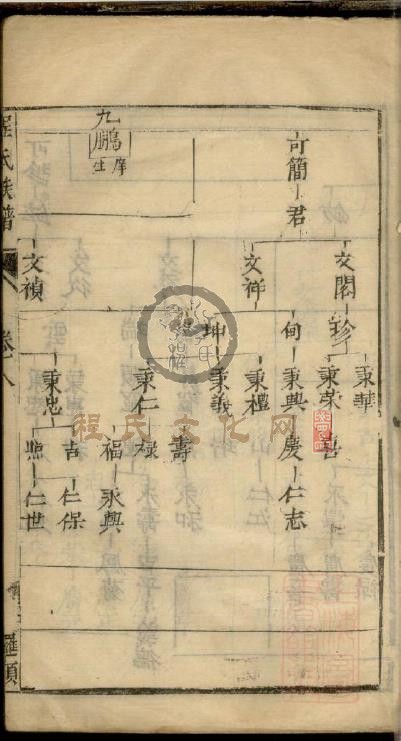 可簡
君
文閣
珍
秉華
秉榮
喜
文祥
秉興
慶
仁志
秉禮
坤
秉義
壽
秉仁
祿
福
永興
九鵬
庠生
文禎
秉忠
吉
仁保
照
仁世
程氏族譜
卷八
程氏文化网